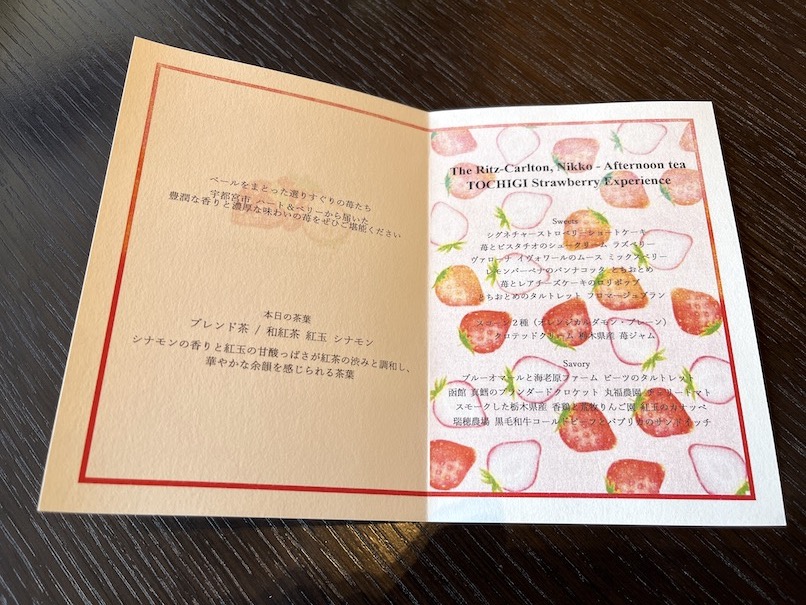 ベールをまとった選りすぐりの苺たち
宇都宮市 ハート＆ベリーから届いた
豊潤な香りと濃厚な味わいの苺をぜひご堪能ください
本日の茶葉
ブレンド茶 / 和紅茶 紅玉 シナモン
シナモンの香りと紅玉の甘酸っぱさが紅茶の渋みと調和し、
華やかな余韻を感じられる茶葉
The Ritz-Carlton, Nikko - Afternoon tea
TOCHIGI Strawberry Experience
Sweets
シグネチャーストロベリーショートケーキ
苺とピスタチオのシュークリーム ラズベリー
ヴァローナ イヴォワールのムース ミックスベリー
レモンバーベナのパンナコッタ とちおとめ
苺とレアチーズケーキのロリポップ
とちおとめのタルトレット フロマージュブラン
スコーン２種（オレンジカルダモン・プレーン）
クロテッドクリーム 栃木県産 苺ジャム
Savory
ブルーオマールと海老原ファーム ビーツのタルトレット
函館 真鱈のブランダードクロケット 丸福農園 チェリートマト
スモークした栃木県産 香鶏と荒牧りんご園 紅玉のカナッペ
瑞穂農場 黒毛和牛コールドビーフとパプリカのサンドイッチ